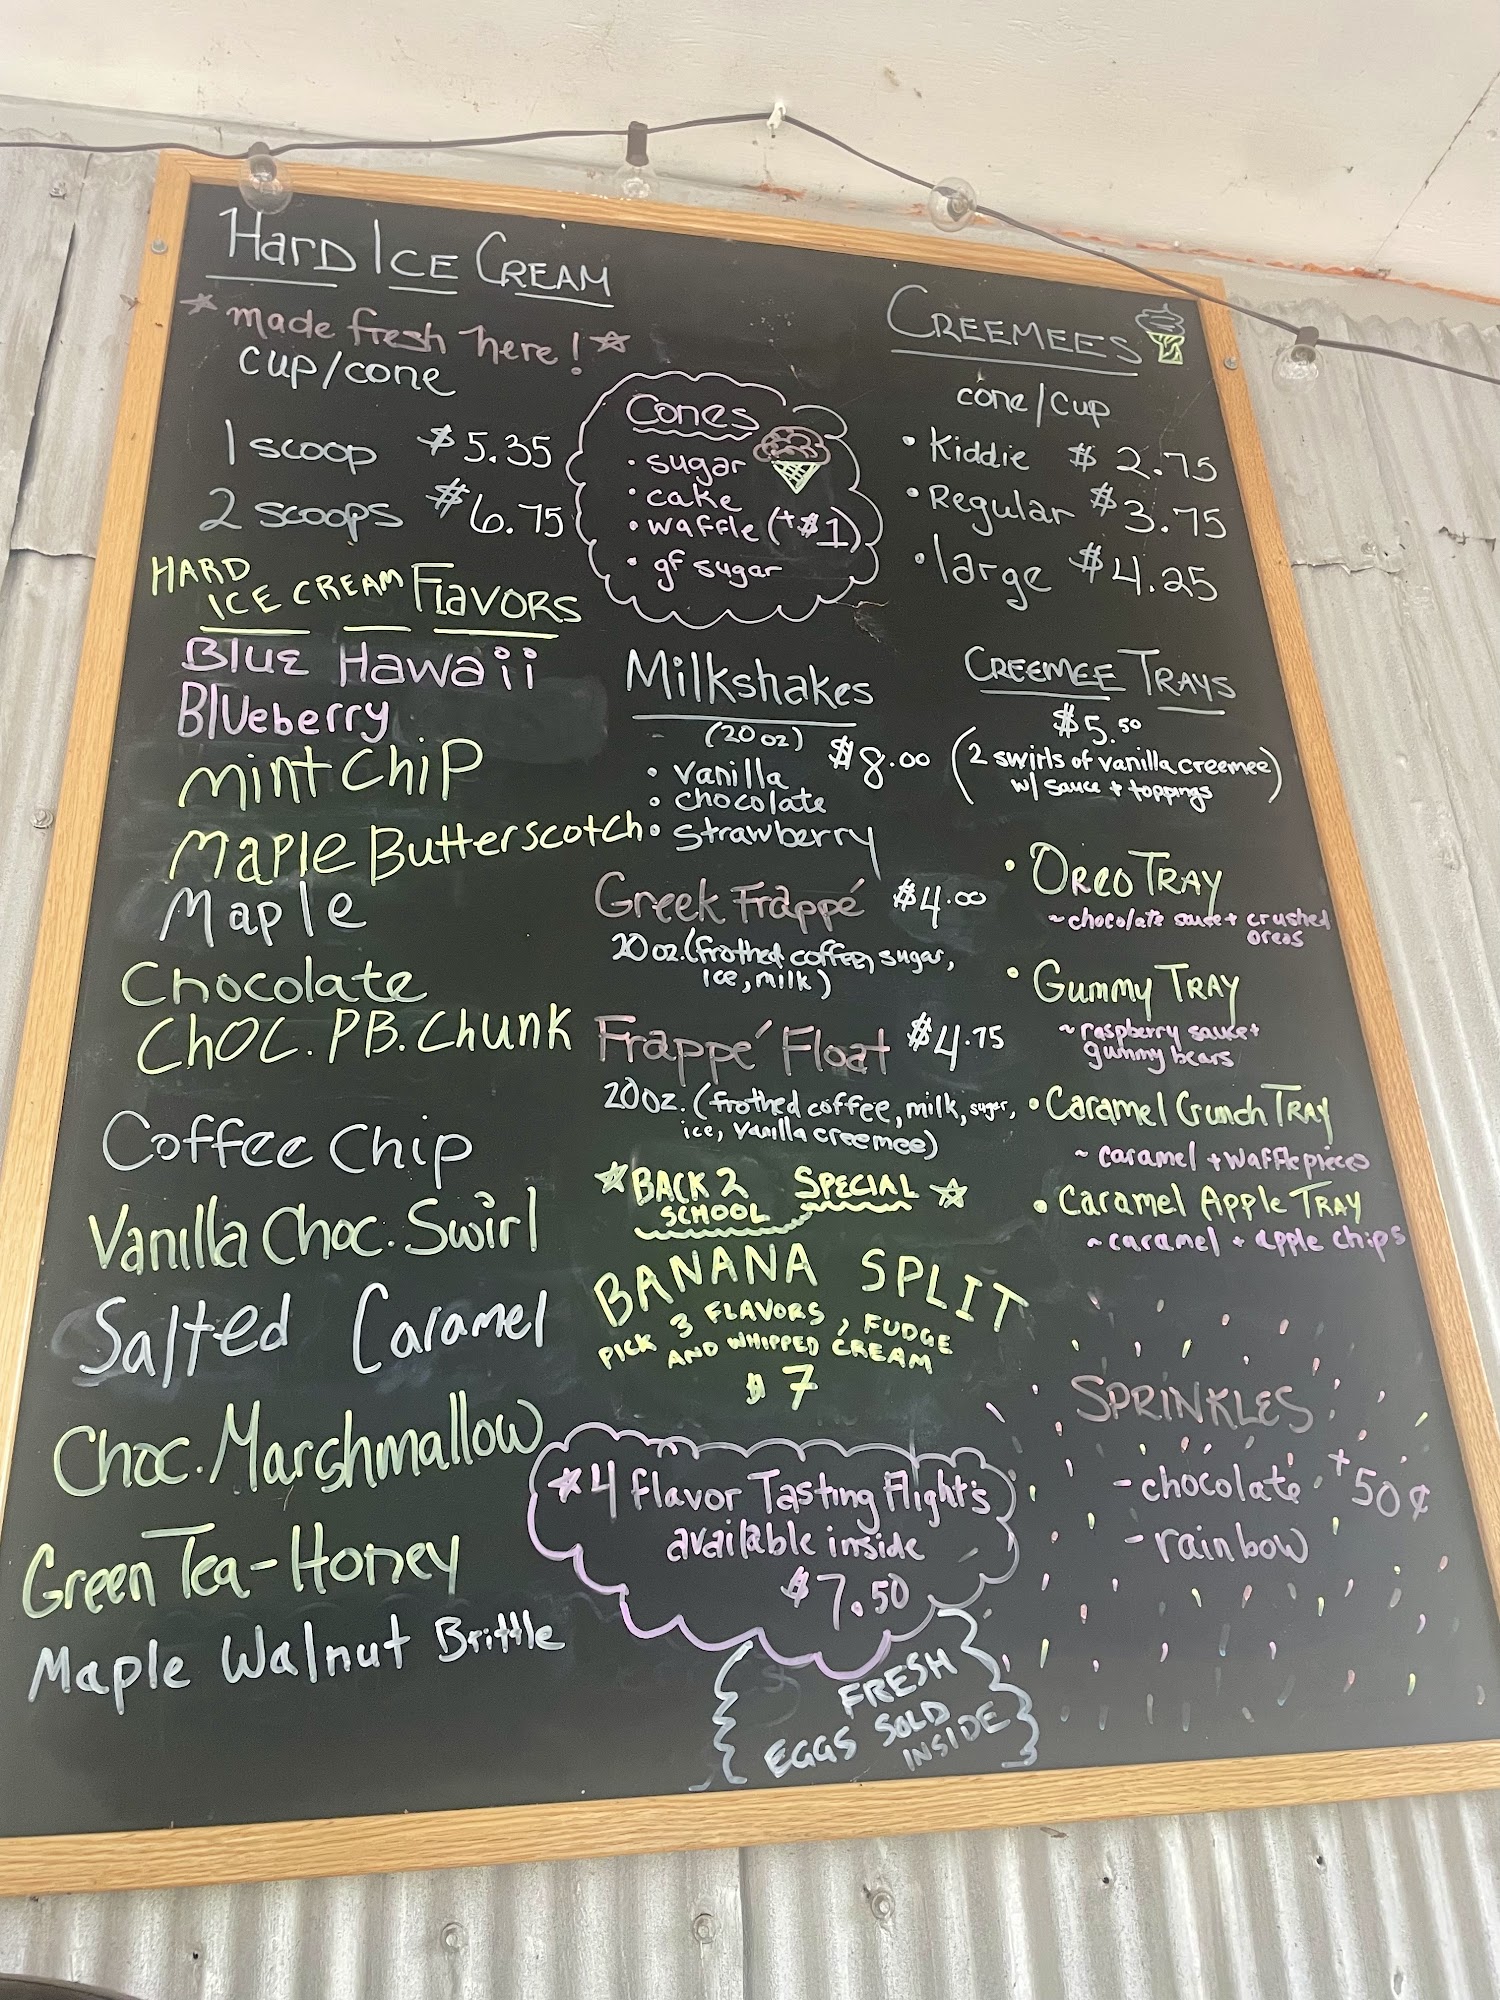 Hard Ice Cream
made fresh here!
cup/cone
1 scoop $5.35
2 scoops $6.75
HARD
ICE CREAM FLAVORS
Blue Hawaii
Blueberry
Mint Chip
Maple Butterscotch
Maple
Chocolate
Choc. PB. Chunk
Coffee Chip
Vanilla Choc. Swirl
Salted Caramel
Choc. Marshmallow
Green Tea-Honey
Maple Walnut Brittle
Cones
• sugar
• cake
• waffle (+$1)
• gf sugar
Milkshakes
(20 oz) $8.00
• vanilla
• chocolate
• strawberry
Greek Frappé $4.00
20 oz. (frothed coffee, sugar,
ice, milk)
Frappé Float $4.75
20 oz. (frothed coffee, milk, sugar,
ice, vanilla creemee)
BACK 2 SPECIAL
SCHOOL
BANANA SPLIT
PICK 3 FLAVORS, FUDGE
AND WHIPPED CREAM
$7
4 flavor Tasting Flight's
available inside
$7.50
FRESH
EGGS SOLD
INSIDE
CREEMEES
cone/cup
• Kiddie $2.75
• Regular $3.75
• large $4.25
CREEMEE TRAYS
$5.50
(2 swirls of vanilla creemee)
w/ sauce + toppings
• OREO TRAY
~ chocolate sauce + crushed
oreos
• GUMMY TRAY
~ raspberry sauce +
gummy bears
• Caramel Crunch TRAY
~ caramel + waffle pieces
• Caramel Apple TRAY
~ caramel + apple chips
SPRINKLES
- chocolate +50¢
- rainbow